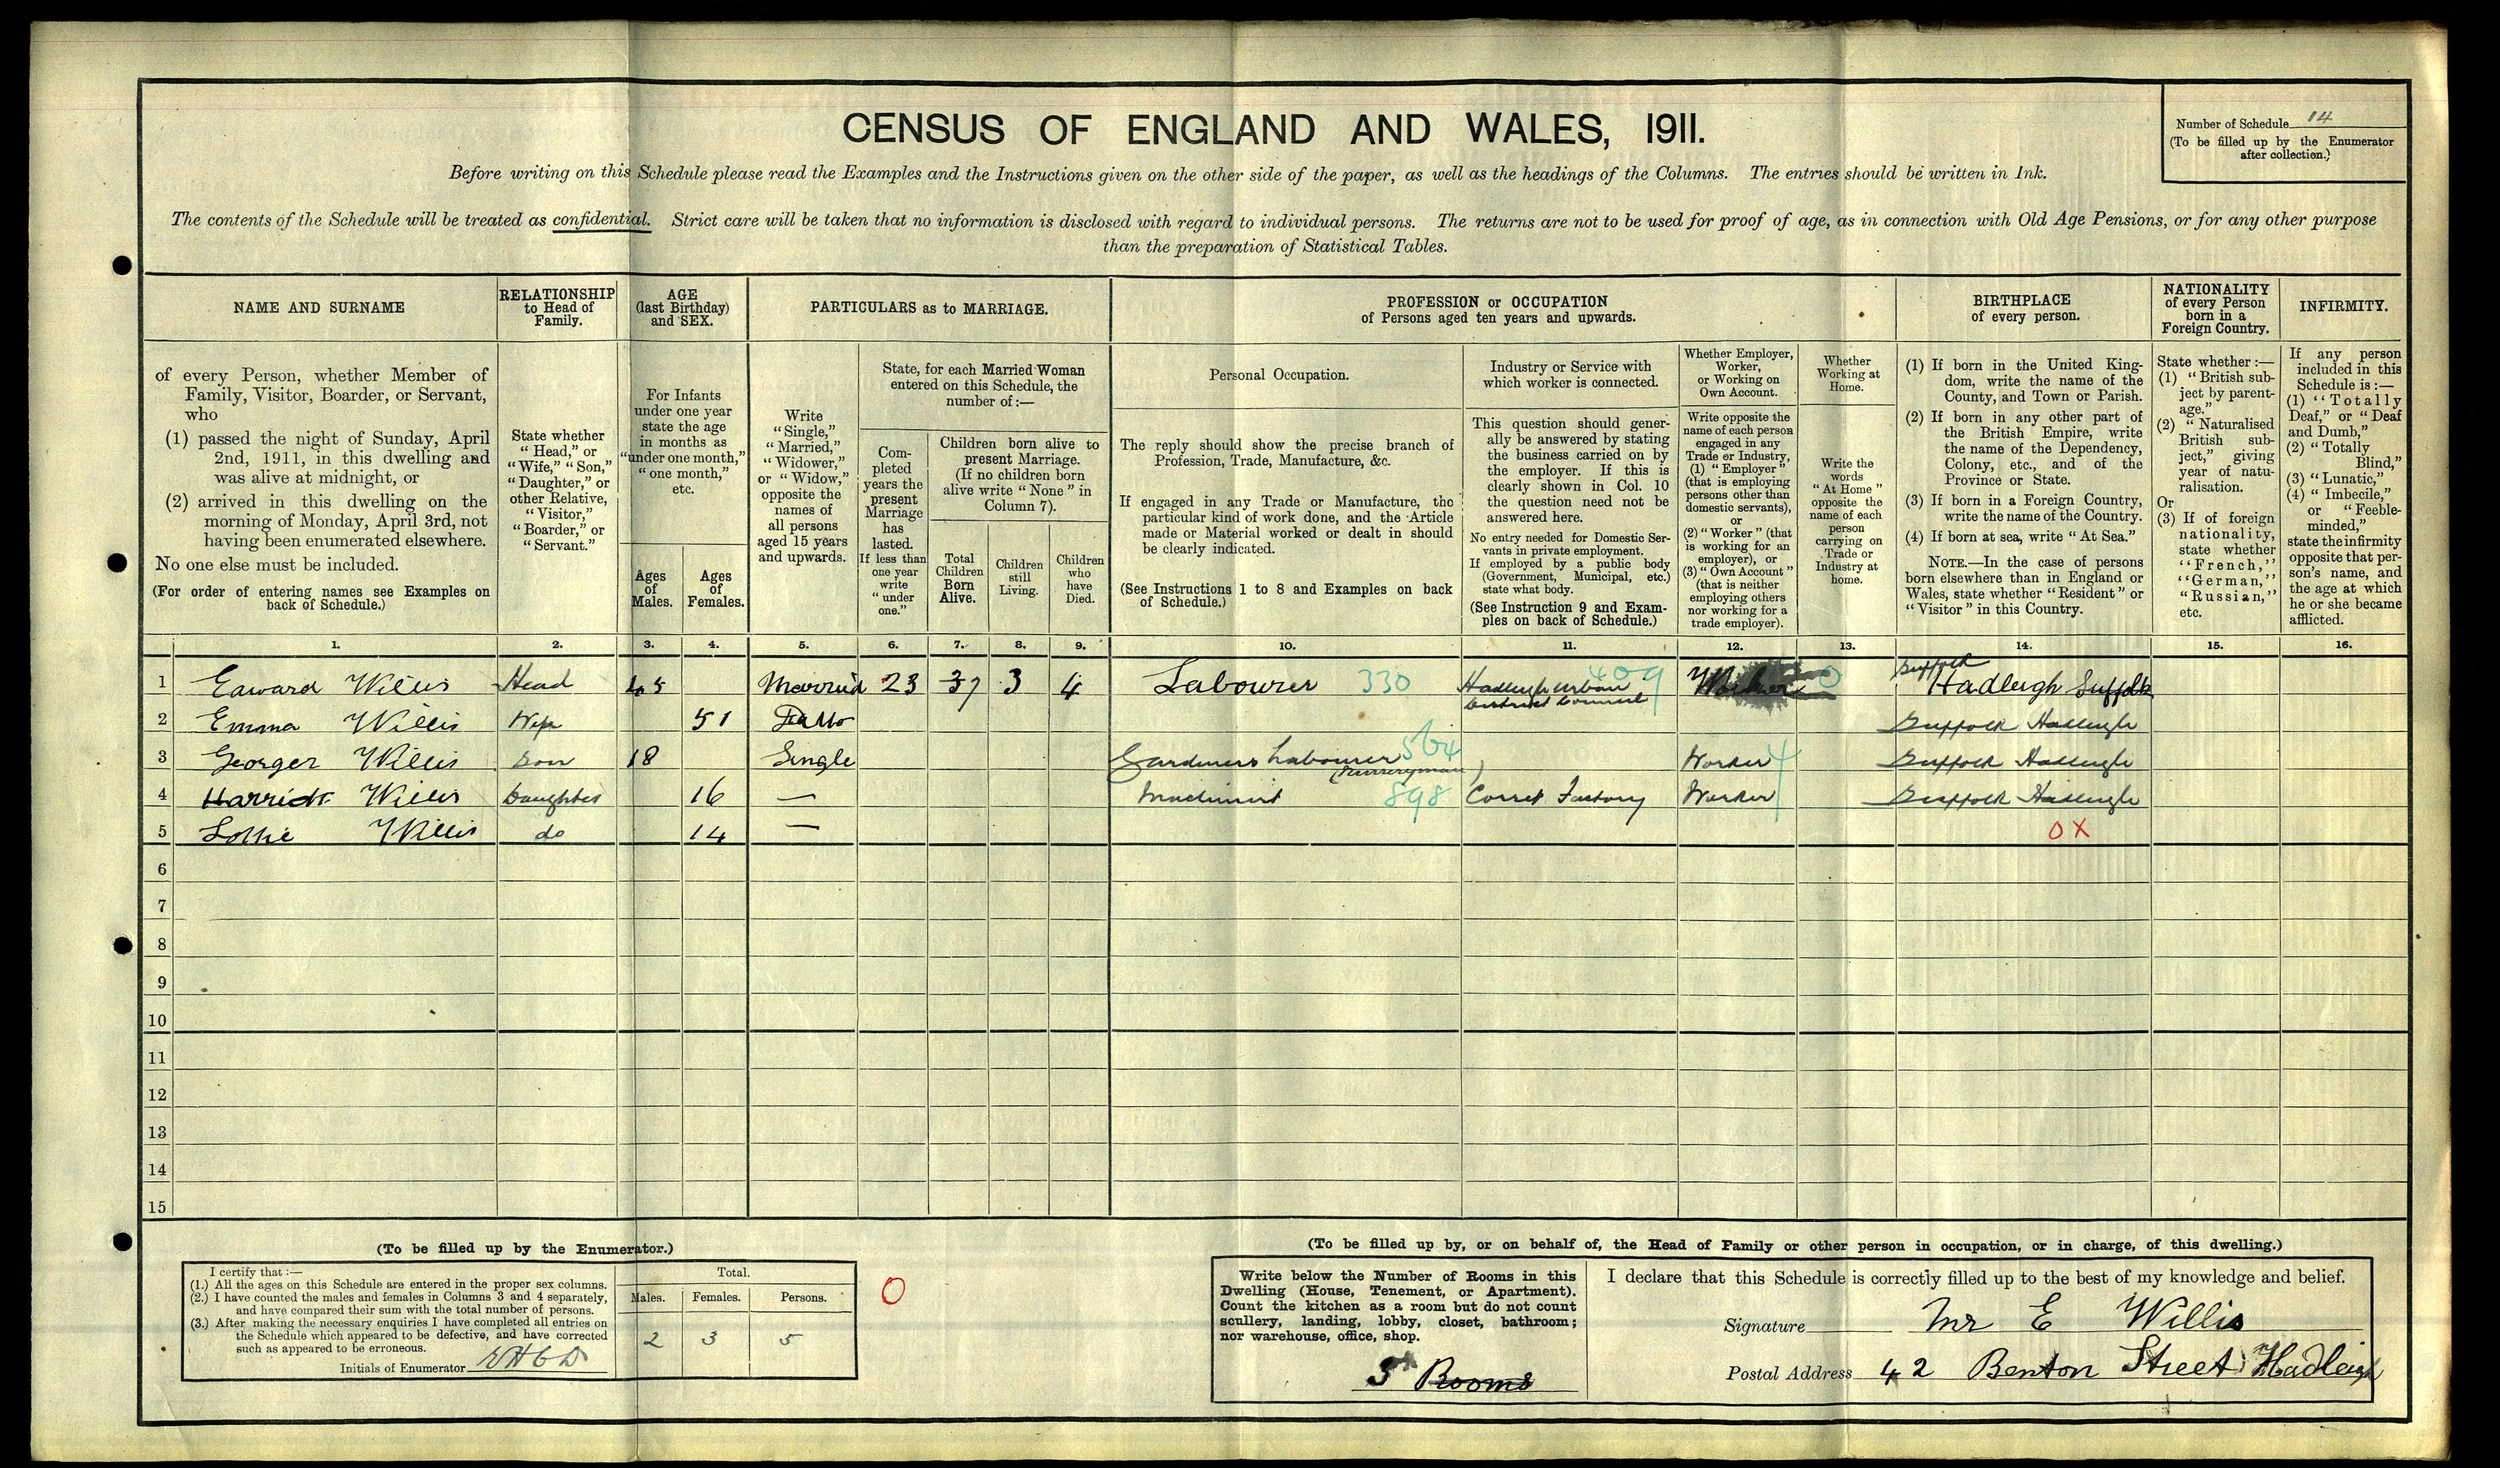 Number of Schedule 14
(To be filled up by the Enumerator
after collection.)
CENSUS OF ENGLAND AND WALES, 1911.
Before writing on this Schedule please read the Examples and the Instructions given on the other side of the paper, as well as the headings of the Columns. The entries should be written in Ink.
The contents of the Schedule will be treated as confidential. Strict care will be taken that no information is disclosed with regard to individual persons. The returns are not to be used for proof of age, as in connection with Old Age Pensions, or for any other purpose
than the preparation of Statistical Tables.
NAME AND SURNAME
of every Person, whether Member of
Family, Visitor, Boarder, or Servant,
who
(1) passed the night of Sunday, April
2nd, 1911, in this dwelling and
was alive at midnight, or
(2) arrived in this dwelling on the
morning of Monday, April 3rd, not
having been enumerated elsewhere.
No one else must be included.
(For order of entering names see Examples on
back of Schedule.)
RELATIONSHIP
to Head of
Family.
State whether
"Head," or
"Wife," "Son,"
"Daughter," or
other Relative,
"Visitor,"
"Boarder," or
"Servant."
AGE
(last Birthday)
and SEX.
For Infants
under one year
state the age
in months as
"under one month,"
"one month,"
etc.
Ages
of
Males.
Ages
of
Females.
PARTICULARS as to MARRIAGE.
Write
"Single,"
"Married,"
"Widower,"
or "Widow,"
opposite the
names of
all persons
aged 15 years
and upwards.
State, for each Married Woman
entered on this Schedule, the
number of:—
Com-
pleted
years the
present
Marriage
has
lasted.
If less than
one year
write
"under
one."
Children born alive to
present Marriage.
(If no children born
alive write "None" in
Column 7).
Total
Children
Born
Alive.
Children
still
Living.
Children
who
have
Died.
PROFESSION or OCCUPATION
of Persons aged ten years and upwards.
Personal Occupation.
The reply should show the precise branch of
Profession, Trade, Manufacture, &c.
If engaged in any Trade or Manufacture, the
particular kind of work done, and the Article
made or Material worked or dealt in should
be clearly indicated.
(See Instructions 1 to 8 and Examples on back
of Schedule.)
Industry or Service with
which worker is connected.
This question should gener-
ally be answered by stating
the business carried on by
the employer. If this is
clearly shown in Col. 10
the question need not be
answered here.
No entry needed for Domestic Ser-
vants in private employment.
If employed by a public body
(Government, Municipal, etc.)
state what body.
(See Instruction 9 and Exam-
ples on back of Schedule.)
Whether Employer,
Worker,
or Working on
Own Account.
Write opposite the
name of each person
engaged in any
Trade or Industry,
(1) "Employer"
(that is employing
persons other than
domestic servants),
or
(2) "Worker" (that
is working for an
employer), or
(3) "Own Account"
(that is neither
employing others
nor working for a
trade employer).
Whether
Working at
Home.
Write the
words
"At Home"
opposite the
name of each
person
carrying on
Trade or
Industry at
home.
BIRTHPLACE
of every person.
(1) If born in the United King-
dom, write the name of the
County, and Town or Parish.
(2) If born in any other part of
the British Empire, write
the name of the Dependency,
Colony, etc., and of the
Province or State.
(3) If born in a Foreign Country,
write the name of the Country.
(4) If born at sea, write "At Sea."
NOTE.—In the case of persons
born elsewhere than in England or
Wales, state whether "Resident" or
"Visitor" in this Country.
NATIONALITY
of every Person
born in a
Foreign Country.
State whether :—
(1) "British sub-
ject by parent-
age."
(2) "Naturalised
British sub-
ject," giving
year of natu-
ralisation.
Or
(3) If of foreign
nationality,
state whether
"French,"
"German,"
"Russian,"
etc.
INFIRMITY.
If any person
included in this
Schedule is :—
(1) "Totally
Deaf," or "Deaf
and Dumb,"
(2) "Totally
Blind,"
(3) "Lunatic,"
(4) "Imbecile,"
or "Feeble-
minded,"
state the infirmity
opposite that per-
son's name, and
the age at which
he or she became
afflicted.
1. 2. 3. 4. 5. 6. 7. 8. 9. 10. 11. 12. 13. 14. 15. 16.
1 Edward Willis Head 45 Married 23 7 3 4 Labourer 330 Hadleigh Urban District Council 409 Worker 0 Suffolk Hadleigh Suffolk
2 Emma Willis Wife 51 Ditto Suffolk Hadleigh
3 George Willis Son 18 Single Gardiners Labourer (Nurseryman) 564 Worker 4 Suffolk Hadleigh
4 Harriet Willis Daughter 16 — Machinist 898 Corset Factory Worker Suffolk Hadleigh
5 Lottie Willis do 14 — OX
6
7
8
9
10
11
12
13
14
15
(To be filled up by the Enumerator.)
I certify that :—
(1.) All the ages on this Schedule are entered in the proper sex columns.
(2.) I have counted the males and females in Columns 3 and 4 separately,
and have compared their sum with the total number of persons.
(3.) After making the necessary enquiries I have completed all entries on
the Schedule which appeared to be defective, and have corrected
such as appeared to be erroneous.
Initials of Enumerator
Total.
Males. Females. Persons.
2 3 5
0
(To be filled up by, or on behalf of, the Head of Family or other person in occupation, or in charge, of this dwelling.)
Write below the Number of Rooms in this
Dwelling (House, Tenement, or Apartment).
Count the kitchen as a room but do not count
scullery, landing, lobby, closet, bathroom;
nor warehouse, office, shop.
Rooms
I declare that this Schedule is correctly filled up to the best of my knowledge and belief.
Signature Mr E Willis
Postal Address 42 Benton Street Hadleigh